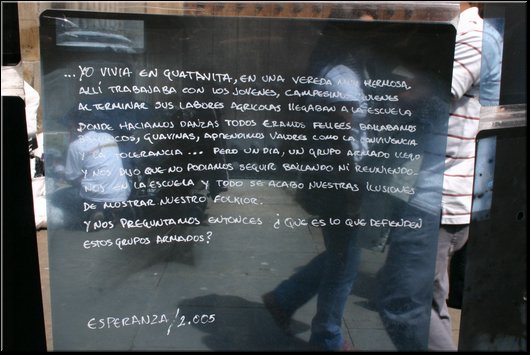 ...YO VIVIA EN GUATAVITA, EN UNA VEREDA MUY HERMOSA
ALLI TRABAJABA CON LOS JOVENES, CAMPESINOS QUIENES
AL TERMINAR SUS LABORES AGRICOLAS LLEGABAN A LA ESCUELA
DONDE HACIAMOS DANZAS TODOS ERAMOS FELICES, BAILABAMOS
BAMBUCOS, GUAVINAS, APRENDIMOS VALORES COMO LA CONVIVENCIA
Y LA TOLERANCIA ... PERO UN DIA, UN GRUPO ARMADO LLEGO
Y NOS DIJO QUE NO PODIAMOS SEGUIR BAILANDO NI REUNIENDO-
NOS EN LA ESCUELA Y TODO SE ACABO NUESTRAS ILUSIONES
DE MOSTRAR NUESTRO FOLKLOR.
Y NOS PREGUNTAMOS ENTONCES ¿QUE ES LO QUE DEFIENDEN
ESTOS GRUPOS ARMADOS?
ESPERANZA/2.005